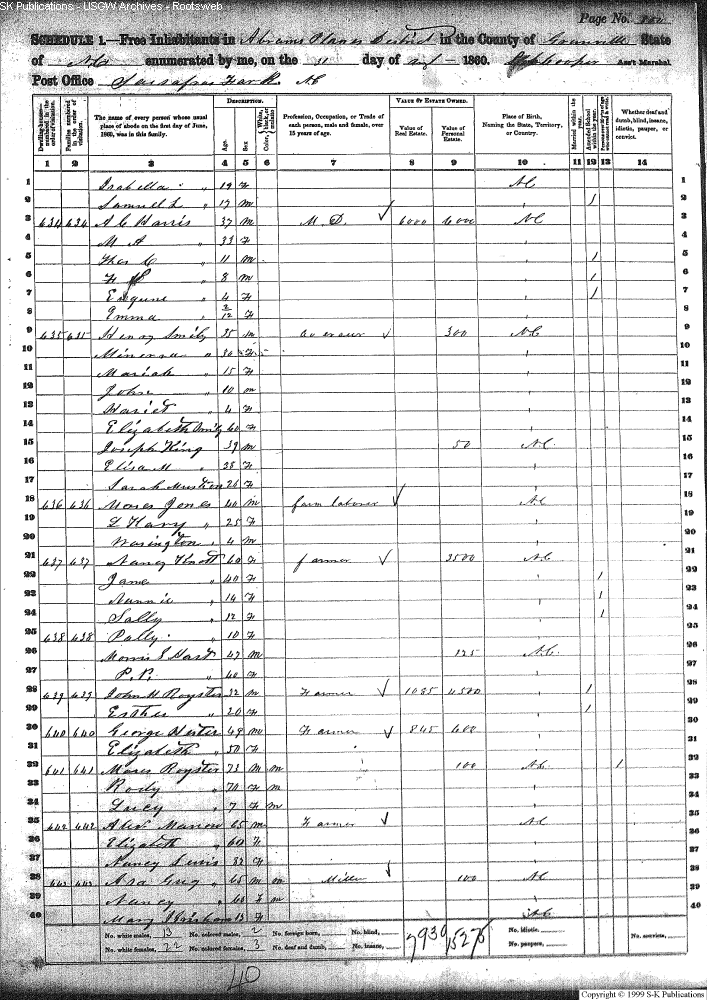 SK Publications - USGW Archives - Rootsweb
Page No.
SCHEDULE 1.—Free Inhabitants in Abrams Plains District in the County of Granville State
of NC enumerated by me, on the day of 1860. Ass't Marshal
Post Office Sassafras Fork NC
Dwelling-houses—numbered in the order of visitation.
Families numbered in the order of visitation.
The name of every person whose usual place of abode on the first day of June, 1860, was in this family.
DESCRIPTION.
Age.
Sex.
Color, White, black, or mulatto
Profession, Occupation, or Trade of each person, male and female, over 15 years of age.
VALUE OF ESTATE OWNED.
Value of Real Estate.
Value of Personal Estate.
Place of Birth, Naming the State, Territory, or Country.
Married within the year.
Attended School within the year.
Whether deaf and dumb, blind, insane, idiotic, pauper, or convict.
1 2 3 4 5 6 7 8 9 10 11 12 13 14
1 Isabella " 19 F NC 1
2 Samuel L " 17 M 1 2
3 634 634 A C Harris 37 M M. D. 6000 6000 NC 3
4 M A " 33 F 4
5 Thos C " 11 M 1 5
6 8 M 1 6
7 Eugune " 4 F 1 7
8 Emma " 2/12 F 8
9 635 635 Henry Smily 35 M Overseer 300 NC 9
10 Minerva " 30 F 10
11 Mariah " 15 F 11
12 John " 10 M 12
13 Hariet " 4 F 13
14 Elizabeth Smily 60 F 14
15 Joseph King 39 M 50 NC 15
16 Elisa M " 28 F 16
17 Sarah 26 F 17
18 636 636 Moses Jones 40 M farm laborer NC 18
19 L Hary " 25 F 19
20 Wasington " 4 M 20
21 637 637 Nancy Knott 60 F farmer 3500 NC 21
22 Jane " 40 F 1 22
23 Nannie " 14 F 1 23
24 Sally " 12 F 1 24
25 638 638 Polly " 10 F 25
26 Morris S Hart 47 M 125 NC 26
27 P. P. " 40 F 27
28 639 639 John M Royster 32 M Farmer 1085 4500 1 28
29 Esther " 20 F 1 29
30 640 640 George Hester 49 M Farmer 845 600 30
31 Elizabeth " 50 F 31
32 641 641 Moses Royster 73 M M 100 NC 1 32
33 Rody " 70 F M 33
34 Lucy " 7 F M 34
35 642 642 Alex Marrow 65 M Farmer NC 35
36 Elizabeth " 60 F 36
37 Nancy Lewis 82 F 37
38 643 643 Asa Greg " 45 M M Miller 100 NC 38
39 Nancy " 40 F M 39
40 Mary 13 F NC 40
No. white males, 13 No. colored males, 2 No. foreign born, No. blind, 7930 15275 No. idiotic, No. convicts,
No. white females, 22 No. colored females, 3 No. deaf and dumb, No. insane, No. paupers,
40
Copyright © 1999 S-K Publications